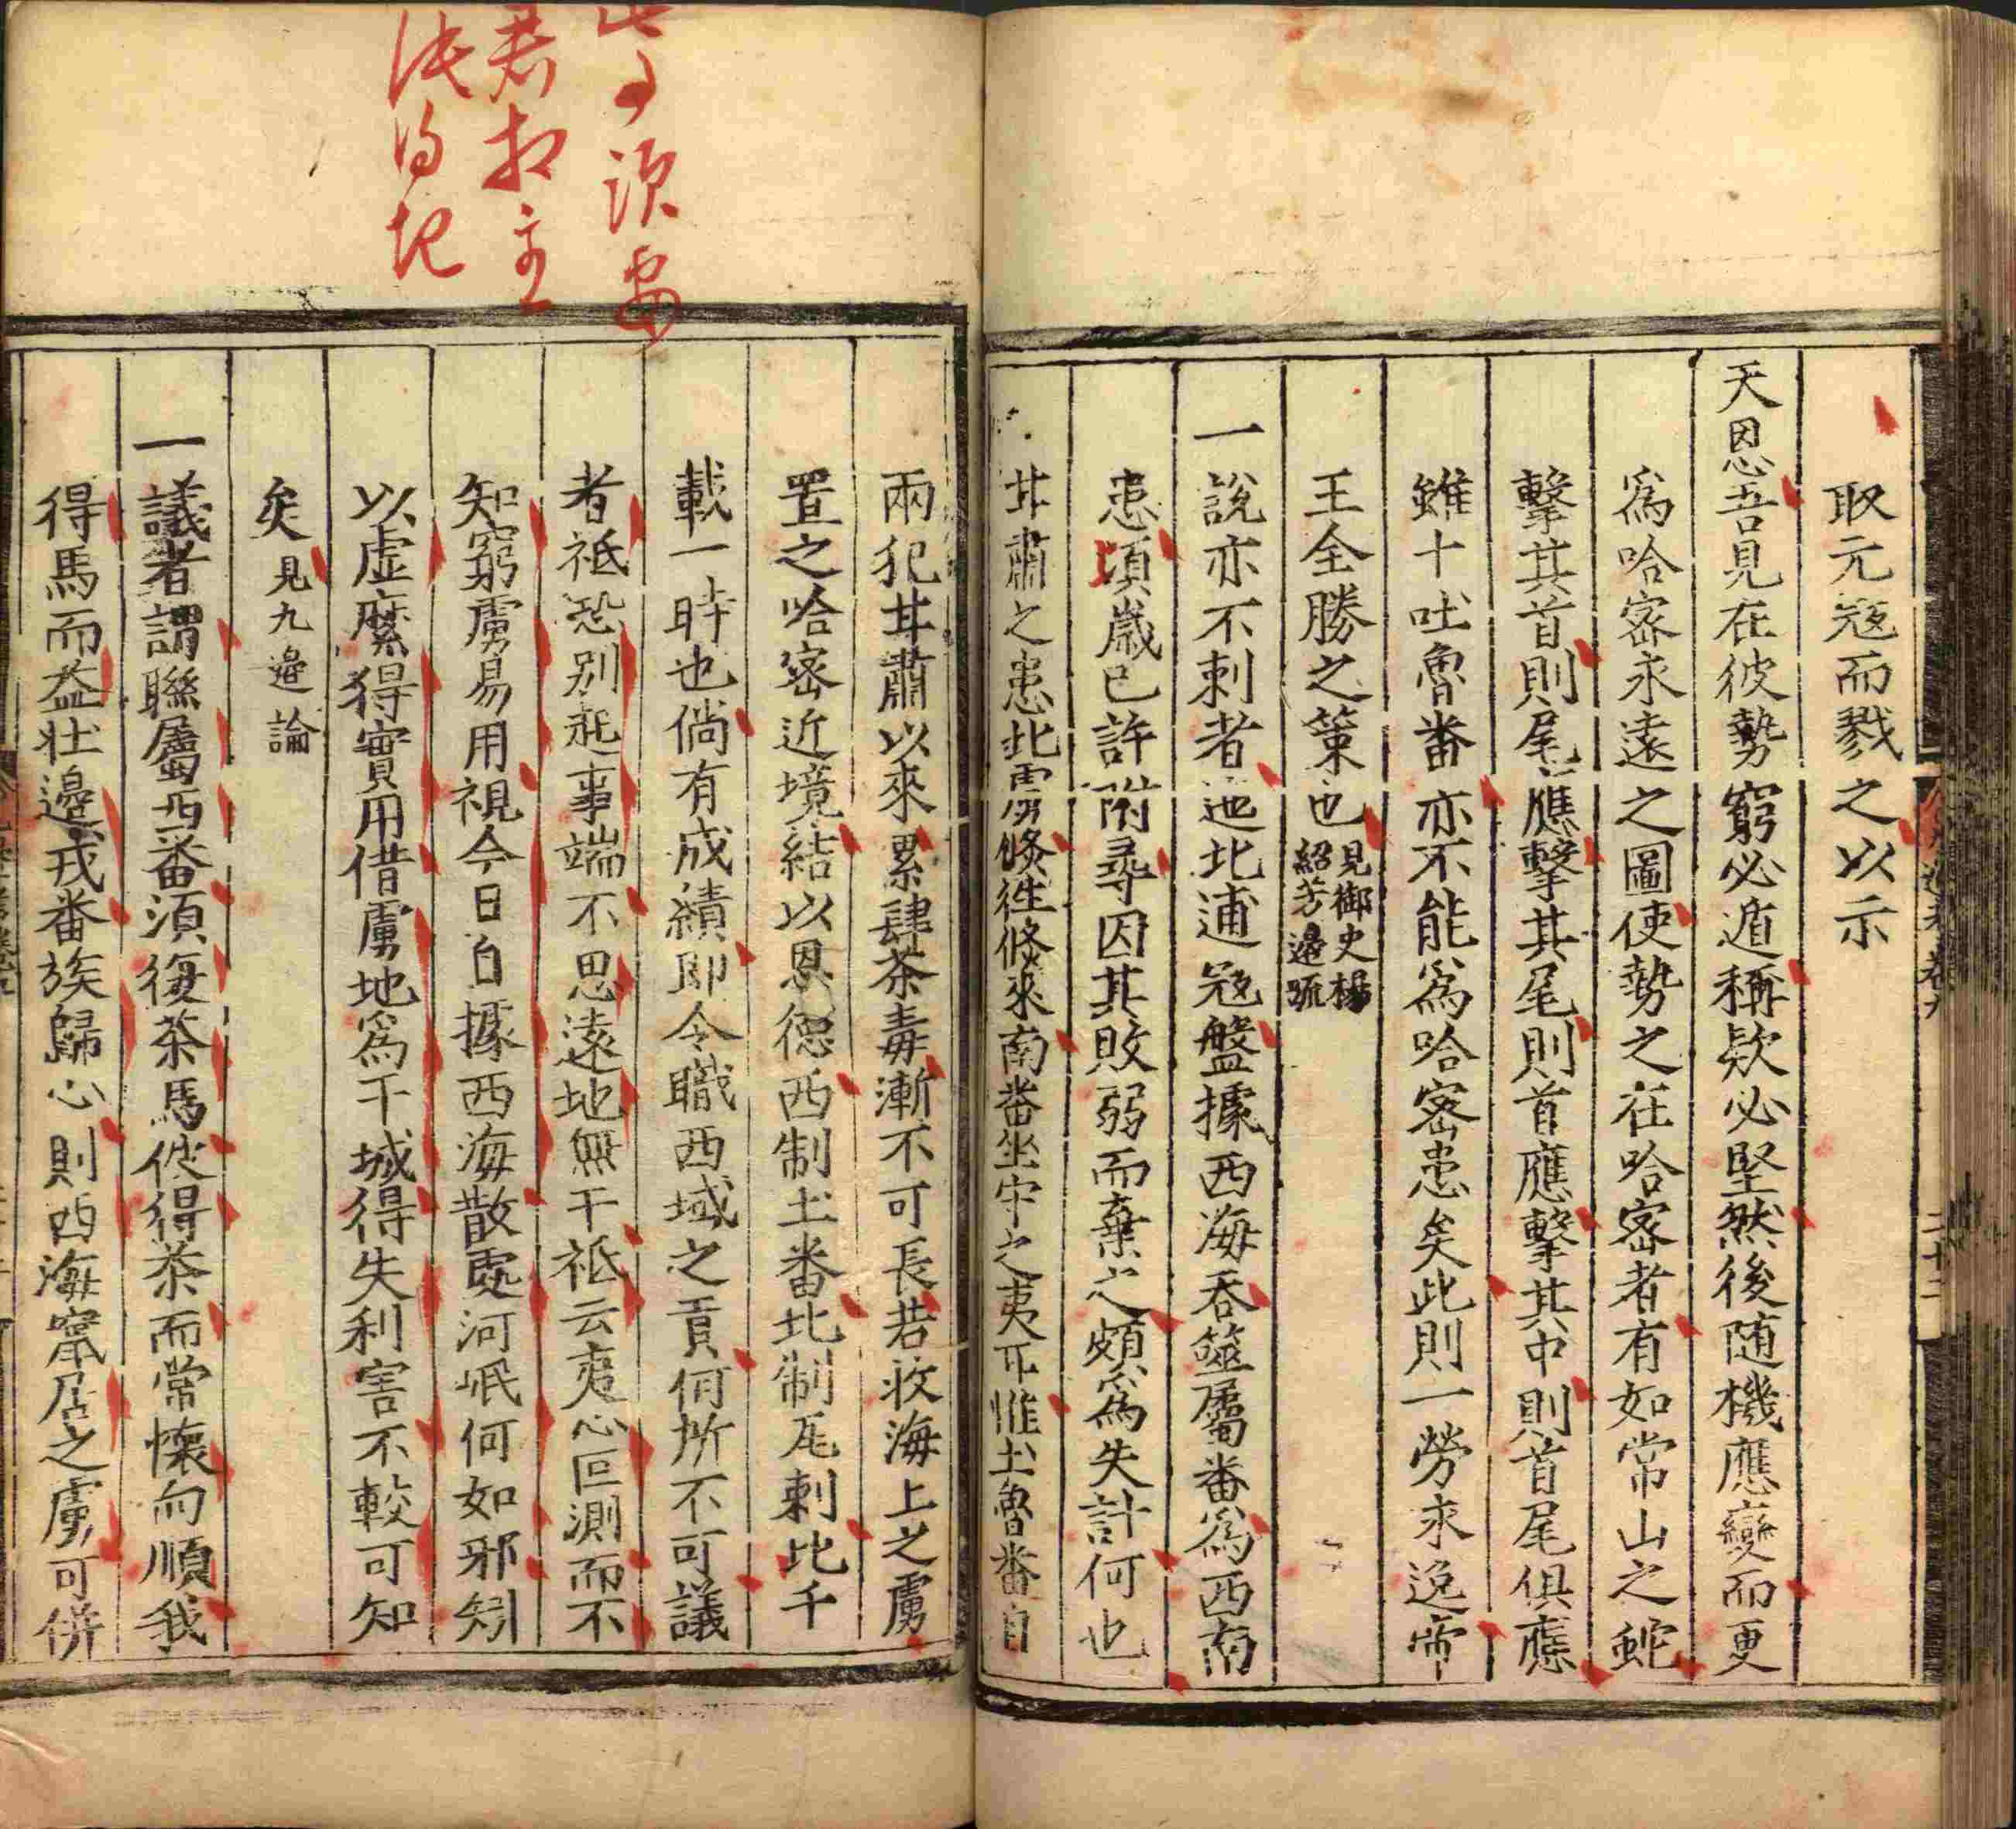 取元冦而戮之以示
天恩吾見在彼勢窮必遁稱欵必堅然後随機應變而更
爲哈宻永遠之圖使勢之在哈宻者有如常山之蛇
擊其首則尾應擊其尾則首應擊其中則首尾俱應
雖十吐魯番亦不能爲哈宻患矣此則一勞永逸帝
王全勝之策也見御史楊紹芳邊疏
一說亦不剌者迤北逋冦盤據西海吞噬屬番爲西南
患頃歲已許附尋因其敗弱而棄之頗爲失計何也
甘肅之患北虜倐徃倐來南番坐守之夷耳惟土魯番自
兩犯甘肅以來累肆荼毒漸不可長若收海上之虜
置之哈宻近境結以恩德西制土番北制瓦剌此千
載一時也倘有成績即令職西域之貢何所不可議
者衹恐别起事端不思逺地無干衹云夷心叵測而不
知窮虜易用視今日自據西海散處河岷何如邪矧
以虚縻得實用借虜地爲干城得失利害不較可知
矣見九邉論
一議者謂聯屬西番須復茶馬彼得茶而常懷向順我
得馬而益壯邊戎番族歸心則西海寗居之虜可併